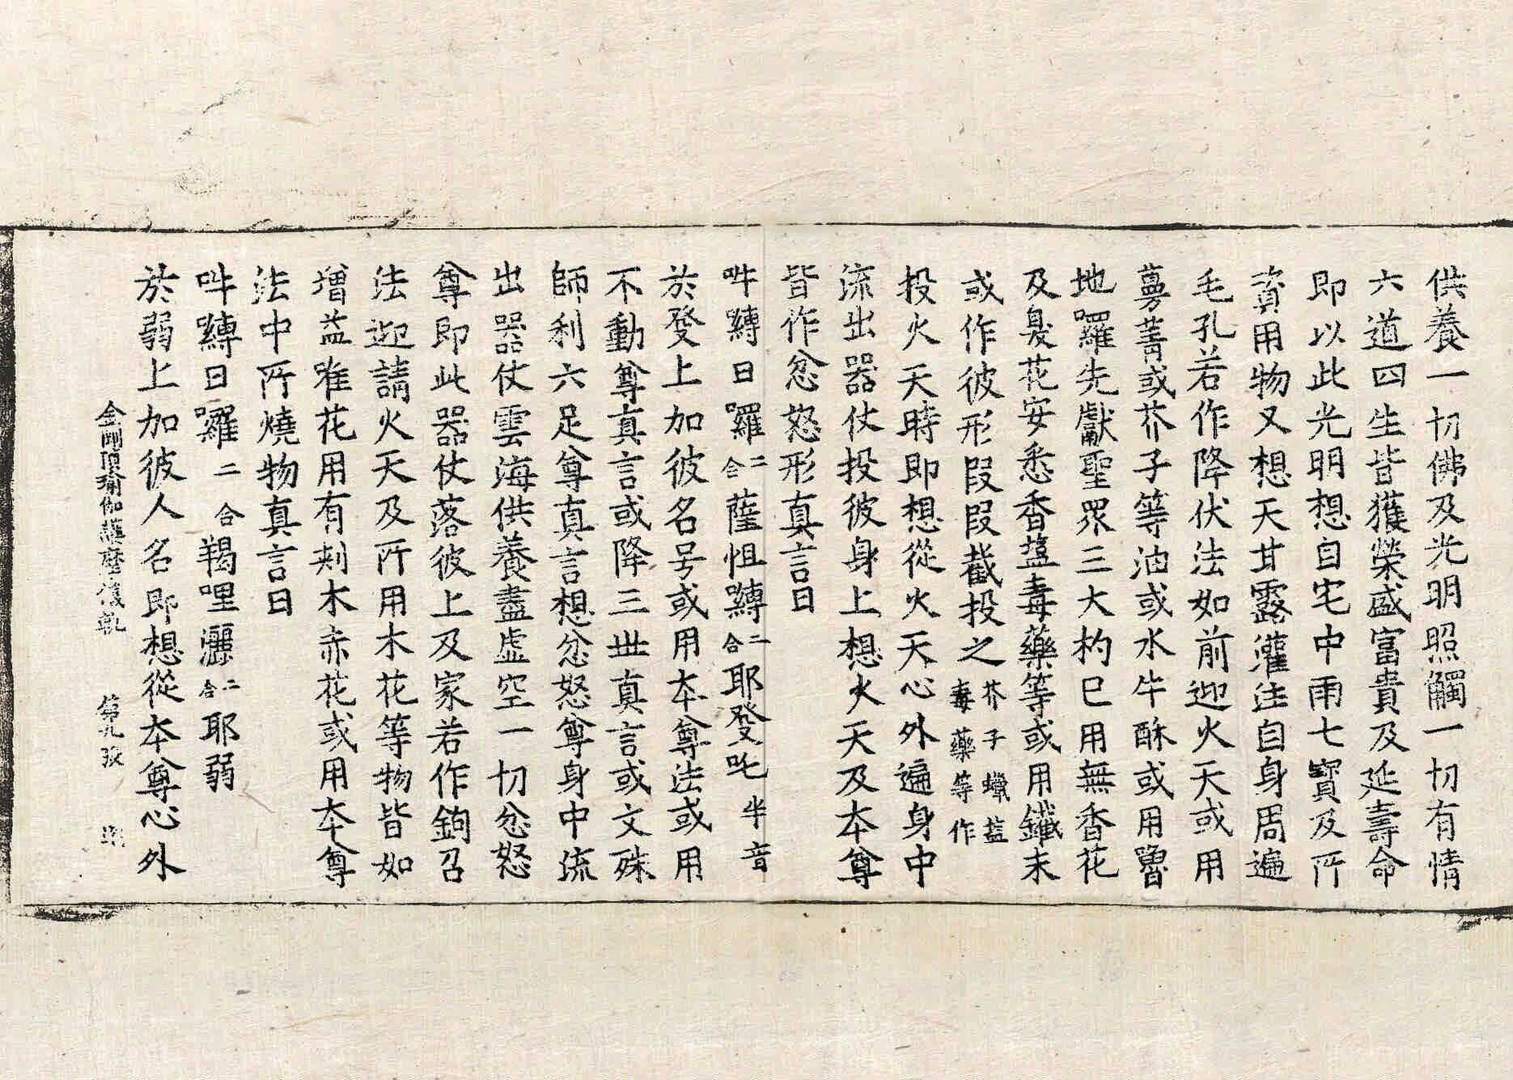 供養一切佛及光明照觸一切有情
六道四生皆獲榮盛富貴及延壽命
即以此光明想自宅中雨七寶及所
資用物又想天甘露灌注自身周遍
毛孔若作降伏法如前迎火天或用
蔓菁或芥子等油或水牛酥或用魯
地囉先獻聖眾三大杓已用無香花
及臭花安悉香塩毒藥等或用鐵末
或作彼形段段截投之芥子蠟塩毒藥等作
投火天時即想從火天心外遍身中
流出器仗投彼身上想火天及本尊
皆作忿怒形真言曰
吽嚩日囉二合薩怛嚩二合耶發吒半音
於發上加彼名号或用本尊法或用
不動尊真言或降三世真言或文殊
師利六足尊真言想忿怒尊身中流
出器仗雲海供養盡虛空一切忿怒
尊即此器仗落彼上及家若作鉤召
法迎請火天及所用木花等物皆如
增益唯花用有刾木赤花或用本尊
法中所燒物真言曰
吽嚩日囉二合羯哩灑二合耶弱
於弱上加彼人名即想從本尊心外
金剛頂瑜伽護摩儀軌 第九張